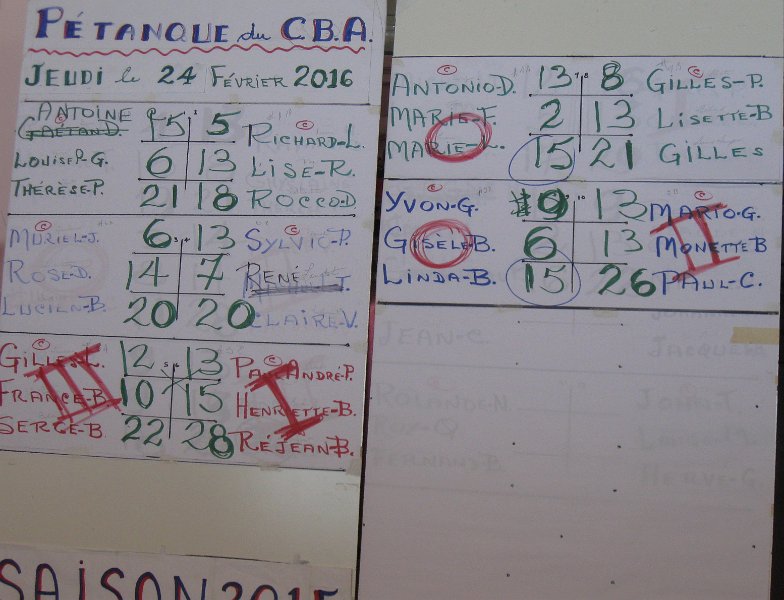 PÉTANQUE du C.B.A.
JEUDI le 24 FÉVRIER 2016
ANTOINE
GAÉTAN-D. 15 5 RICHARD-L.
LOUISE P.-G. 6 13 LISE-R.
THÉRÈSE-P. 21 18 ROCCO-D
MURIEL-J. 6 13 SYLVIE-P.
ROSE-D. 14 7 RENÉ
LUCIEN-B. 20 20 CLAIRE-V.
GILLES-C. 12 13 PAUL ANDRÉ-P.
FRANCE-B. 10 15 HENRIETTE-B.
SERGE-B. 22 28 RÉJEAN-B.
III I
SAISON 2015
ANTONIO-D. 13 8 GILLES-P.
MARIE-F. 2 13 LISETTE-B
MARIE-L. 15 21 GILLES
YVON-G. 9 13 MARIO-G.
GISÈLE-B. 6 13 MONETTE-B
LINDA-B. 15 26 PAUL-C.
II
JEAN-C. JACQUES
ROLANDE-N
GUY-Q
FERNAND-B. HERVÉ-G